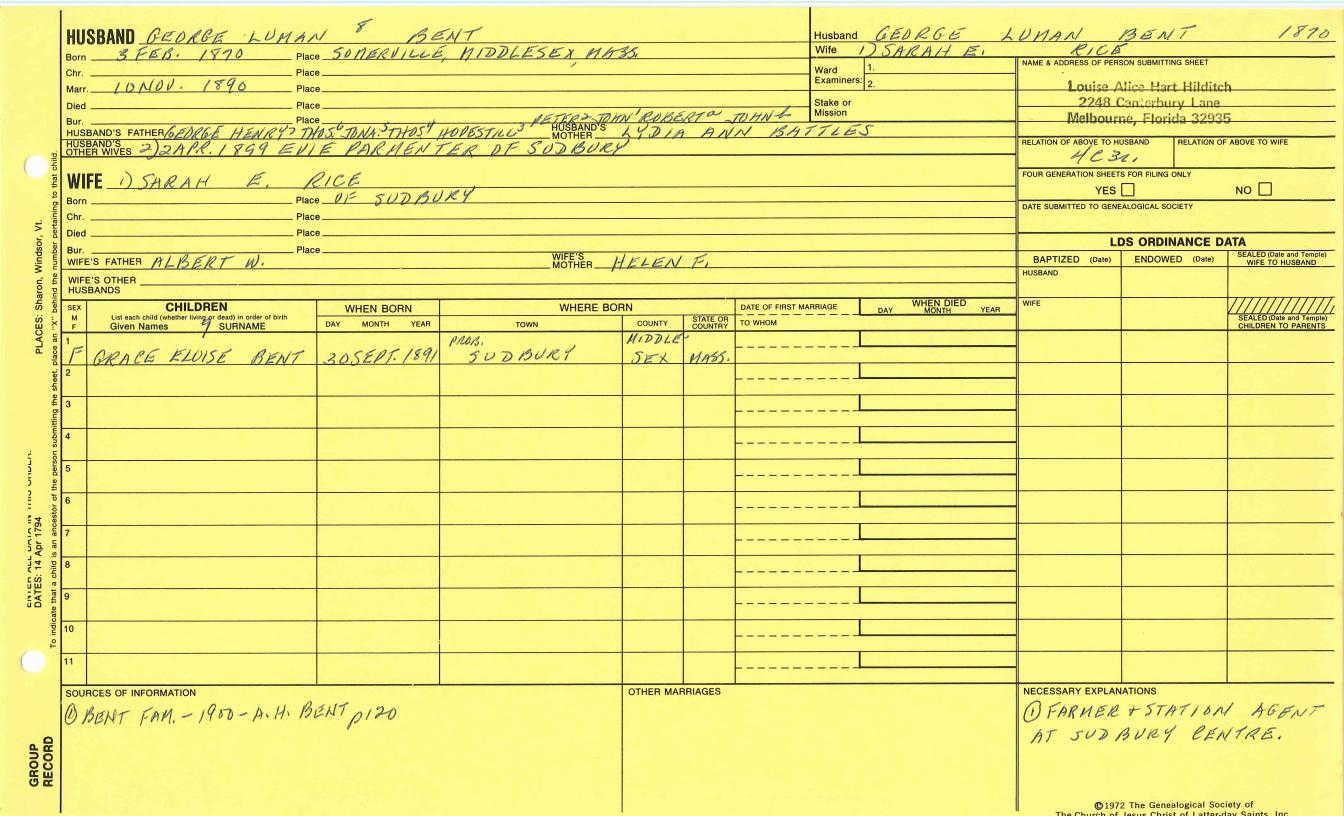 HUSBAND GEORGE LUMAN 8 BENT
Born 3 FEB. 1870 Place SOMERVILLE, MIDDLESEX, MASS.
Chr. Place
Marr. 10 NOV. 1890 Place
Died Place
Bur. Place PETER2 JOHN1 ROBERTa JOHNb
HUSBAND'S FATHER GEORGE HENRY7 THOS6 JONA.5 THOS4 HOPESTILL3 HUSBAND'S MOTHER LYDIA ANN BATTLES
HUSBAND'S OTHER WIVES 2) 2 APR. 1899 EVIE PARMENTER OF SUDBURY
WIFE 1) SARAH E. RICE
Born Place OF SUDBURY
Chr. Place
Died Place
Bur. Place
WIFE'S FATHER ALBERT W. WIFE'S MOTHER HELEN F.
WIFE'S OTHER HUSBANDS
Husband GEORGE LUMAN BENT 1870
Wife 1) SARAH E. RICE
Ward Examiners: 1.
2.
Stake or Mission
NAME & ADDRESS OF PERSON SUBMITTING SHEET
Louise Alice Hart Hilditch
2248 Canterbury Lane
Melbourne, Florida 32935
RELATION OF ABOVE TO HUSBAND RELATION OF ABOVE TO WIFE
4C3r.
FOUR GENERATION SHEETS FOR FILING ONLY
YES NO
DATE SUBMITTED TO GENEALOGICAL SOCIETY
LDS ORDINANCE DATA
BAPTIZED (Date) ENDOWED (Date) SEALED (Date and Temple) WIFE TO HUSBAND
HUSBAND
WIFE
SEALED (Date and Temple) CHILDREN TO PARENTS
SEX M F
CHILDREN
List each child (whether living or dead) in order of birth
Given Names 9 SURNAME
WHEN BORN
DAY MONTH YEAR
WHERE BORN
TOWN COUNTY STATE OR COUNTRY
DATE OF FIRST MARRIAGE
TO WHOM
WHEN DIED
DAY MONTH YEAR
1 PROB. MIDDLE-
F GRACE ELOISE BENT 20 SEPT. 1891 SUDBURY SEX MASS.
2
3
4
5
6
7
8
9
10
11
SOURCES OF INFORMATION
① BENT FAM. - 1900 - A.H. BENT p120
OTHER MARRIAGES
NECESSARY EXPLANATIONS
① FARMER + STATION AGENT
AT SUDBURY CENTRE.
©1972 The Genealogical Society of
The Church of Jesus Christ of Latter-day Saints, Inc.
PLACES: Sharon, Windsor, Vt.
ENTER ALL DATA IN THIS ORDER:
DATES: 14 Apr 1794
To indicate that a child is an ancestor of the person submitting the sheet, place an "X" behind the number pertaining to that child.
GROUP
RECORD